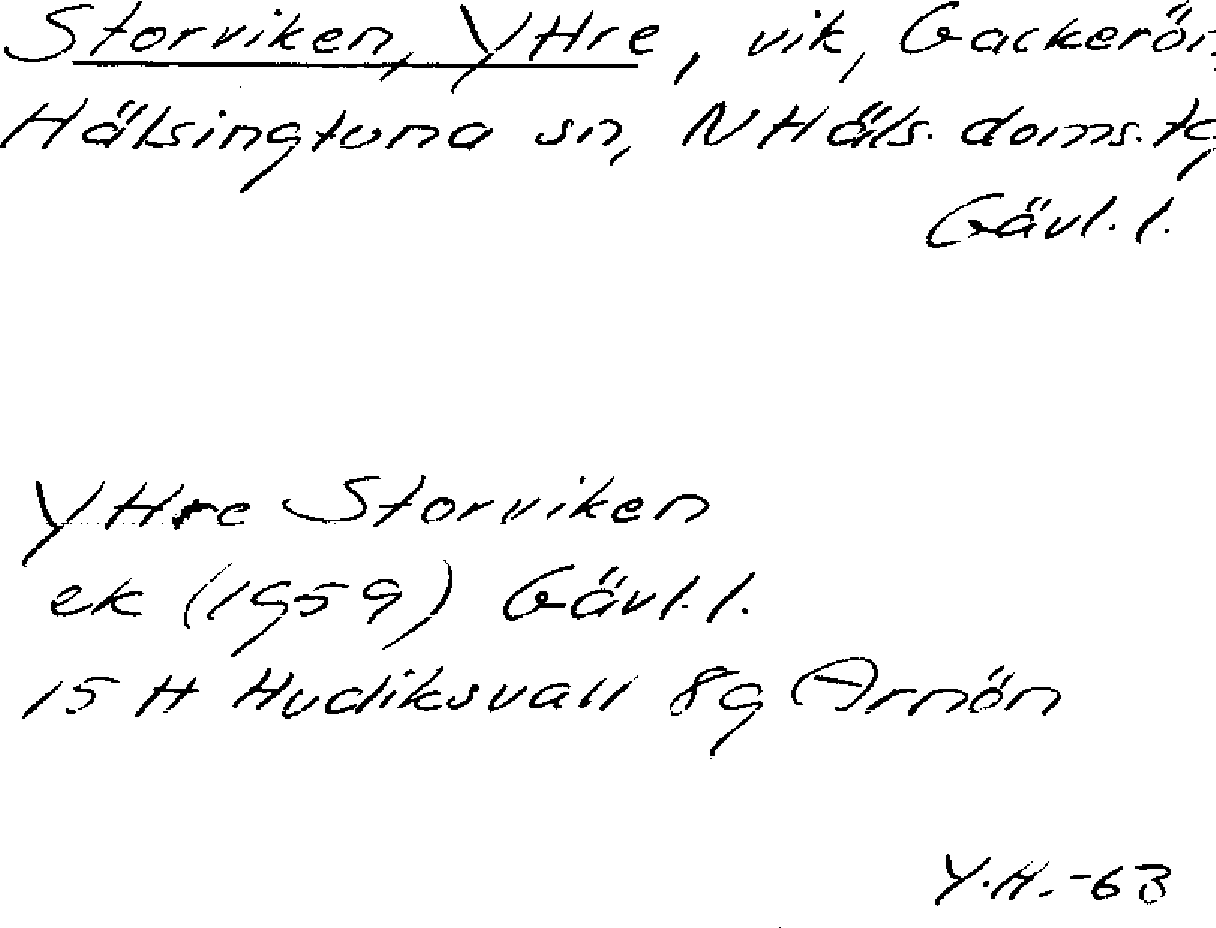 Storviken, Yttre, vik, Gackerön,
Hälsingtuna sn, N Häls. doms. tg
Gävl. l.
Yttre Storviken
ek (1959) Gävl. l.
15 H Hudiksvall 8g Arnön
Y.H. -63